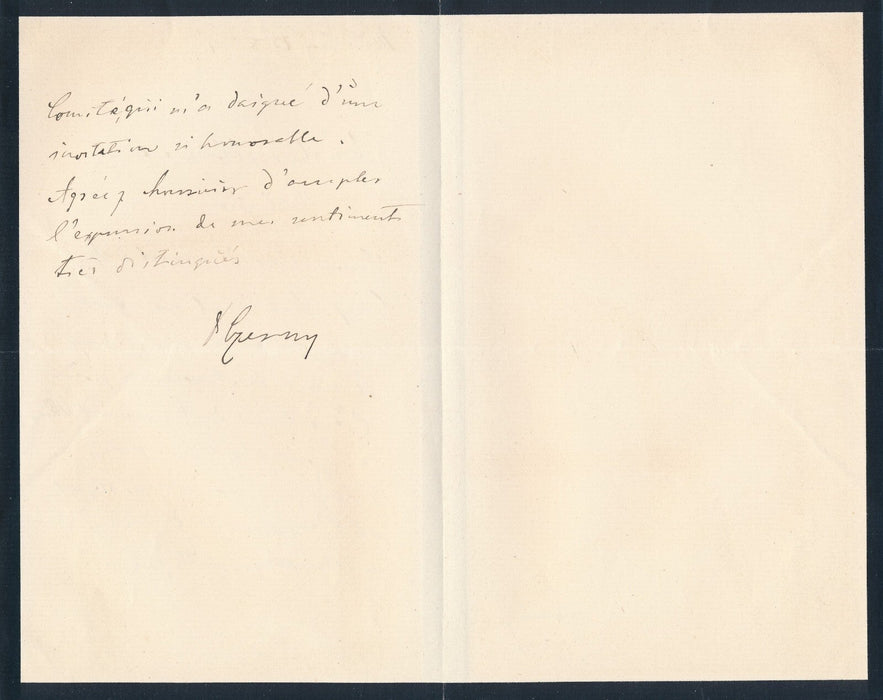 Comité, qui m'a daigné d'une
invitation si honorable.
Agréez Monsieur d'amples
l'expression de mes sentiments
très distingués
Czerny